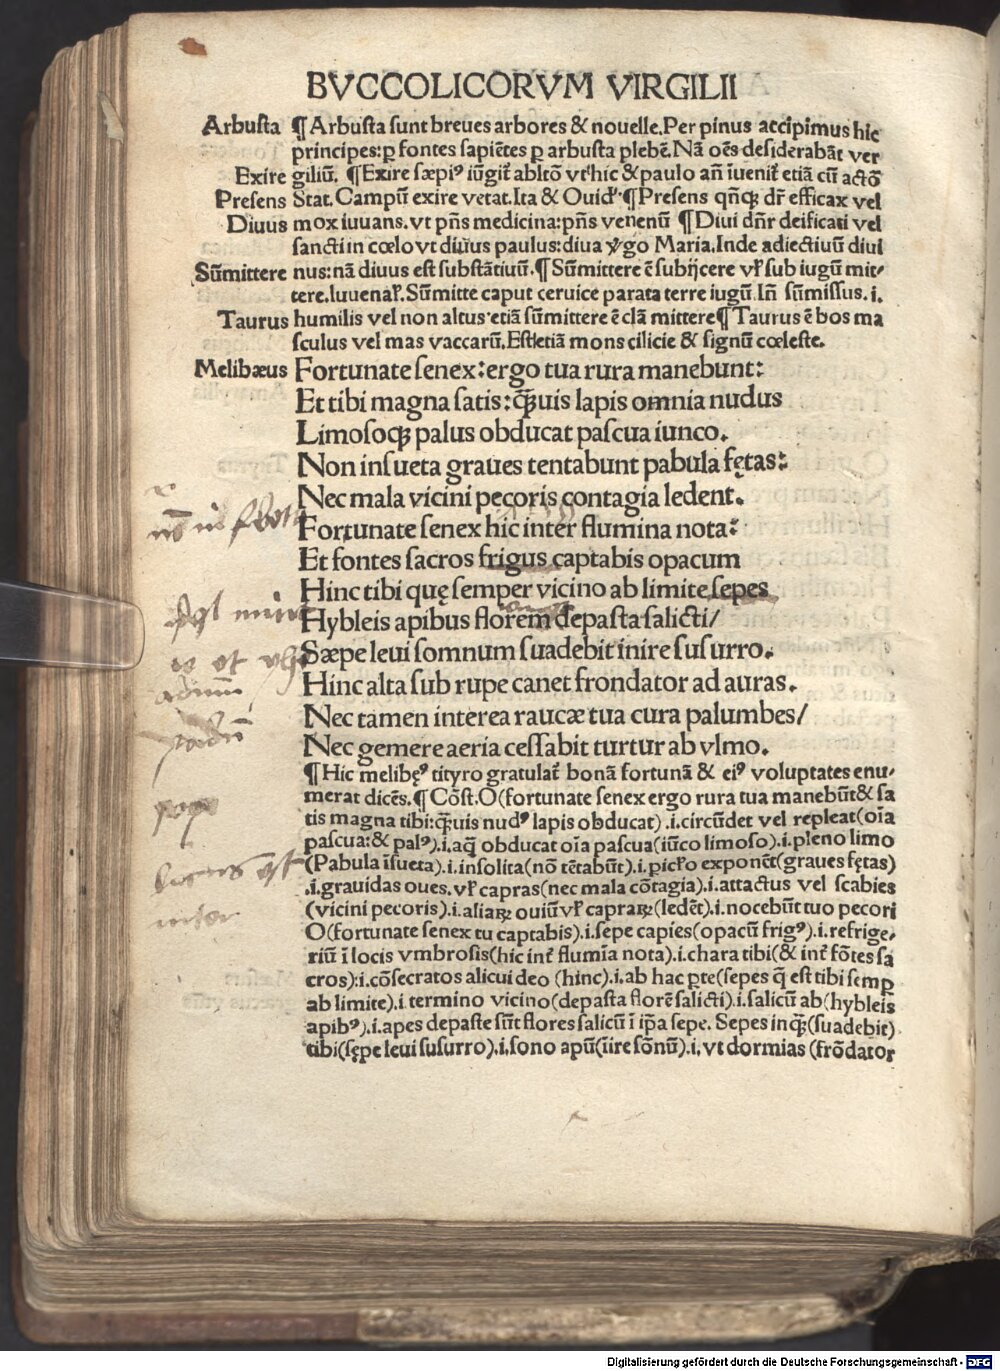 BVCCOLICORVM VIRGILII
Arbusta ¶ Arbusta sunt breues arbores & nouelle. Per pinus accipimus hic
principes: ꝑ fontes sapiẽtes ꝑ arbusta plebẽ. Nã oẽs desiderabãt ver
Exire giliũ. ¶ Exire sæpiꝰ iũgit᷑ ablτõ vt hic & paulo añ iuenit᷑ etiã cũ actõ
Presens Stat. Campũ exire vetat. Ita & Ouid. ¶ Presens qñqꝫ dr̃ efficax vel
Diuus mox iuuans. vt pñs medicina: pñs venenũ ¶ Diui dñr deificati vel
sancti in cœlo vt diuus paulus: diua ꝟgo Maria. Inde adiectiuũ diui
Sũmittere nus: nã diuus est substãtiuũ. ¶ Sũmittere ẽ subijcere vꝉ sub iugũ mit⸗
tere. Iuuenaꝉ. Sũmitte caput ceruice parata terre iugũ. Iñ sũmissus. i.
Taurus humilis vel non altus. etiã sũmittere ẽ clã mittere ¶ Taurus ẽ bos ma
sculus vel mas vaccarũ. Est etiã mons cilicie & signũ cœleste.
Melibæus Fortunate senex: ergo tua rura manebunt:
Et tibi magna satis: q̃ꝫuis lapis omnia nudus
Limosoqꝫ palus obducat pascua iunco.
Non insueta graues tentabunt pabula fętas:
Nec mala vicini pecoris contagia ledent.
Fortunate senex hic inter flumina nota:
Et fontes sacros frigus captabis opacum
Hinc tibi quę semper vicino ab limite sepes
Hybleis apibus florem depasta salicti/
Sæpe leui somnum suadebit inire susurro.
Hinc alta sub rupe canet frondator ad auras.
Nec tamen interea raucæ tua cura palumbes/
Nec gemere aeria cessabit turtur ab vlmo.
¶ Hic melibęꝰ tityro gratulat᷑ bonã fortunã & eiꝰ voluptates enu⸗
merat dicẽs. ¶ Cõst. O (fortunate senex ergo rura tua manebũt & sa
tis magna tibi: q̃ꝫuis nudꝰ lapis obducat) .i. circũdet vel repleat (oĩa
pascua: & palꝰ) .i. aq̃ obducat oĩa pascua (iũco limoso) .i. pleno limo
(Pabula ĩsueta) .i. insolita (nõ tẽtabũt) .i. picꝉo exponẽt (graues fętas)
.i. grauidas oues. vꝉ capras (nec mala cõtagia) .i. attactus vel scabies
(vicini pecoris) .i. aliaꝝ ouiũ vꝉ capraꝝ (ledẽt) .i. nocebũt tuo pecori
O (fortunate senex tu captabis) .i. sepe capies (opacũ frigꝰ) .i. refrige⸗
riũ ĩ locis vmbrosis (hic int᷑ flumĩa nota) .i. chara tibi (& int᷑ fõtes sa
cros): i. cõsecratos alicui deo (hinc) .i. ab hac ꝑte (sepes q̃ est tibi semꝑ
ab limite) .i termino vicino (depasta florẽ salicti) .i. salicũ ab (hybleis
apibꝰ) .i. apes depaste sũt flores salicũ ĩ ip̃a sepe. Sepes inq̃ꝫ (suadebit)
tibi (sępe leui susurro) .i. sono apũ (ĩire sõnũ) .i. vt dormias (frõdator
Digitalisierung gefördert durch die Deutsche Forschungsgemeinschaft - DFG